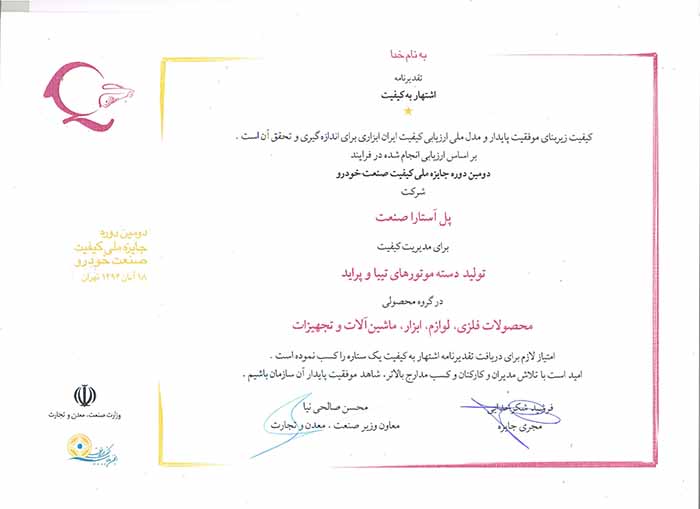 به نام خدا
تقدیرنامه
اشتهار به کیفیت
کیفیت زیربنای موفقیت پایدار و مدل ملی ارزیابی کیفیت ایران ابزاری برای اندازه گیری و تحقق آن است .
بر اساس ارزیابی انجام شده در فرایند
دومین دوره جایزه ملی کیفیت صنعت خودرو
شرکت
پل آستارا صنعت
برای مدیریت کیفیت
تولید دسته موتورهای تیبا و پراید
در گروه محصولی
محصولات فلزی، لوازم، ابزار، ماشین آلات و تجهیزات
امتیاز لازم برای دریافت تقدیرنامه اشتهار به کیفیت یک ستاره را کسب نموده است .
امید است با تلاش مدیران و کارکنان و کسب مدارج بالاتر، شاهد موفقیت پایدار آن سازمان باشیم .
فرشید شکرخدایی
مجری جایزه
محسن صالحی نیا
معاون وزیر صنعت ، معدن و تجارت
دومین دوره
جایزه ملی کیفیت
صنعت خودرو
۱۸ آبان ۱۳۹۴ تهران
وزارت صنعت، معدن و تجارت